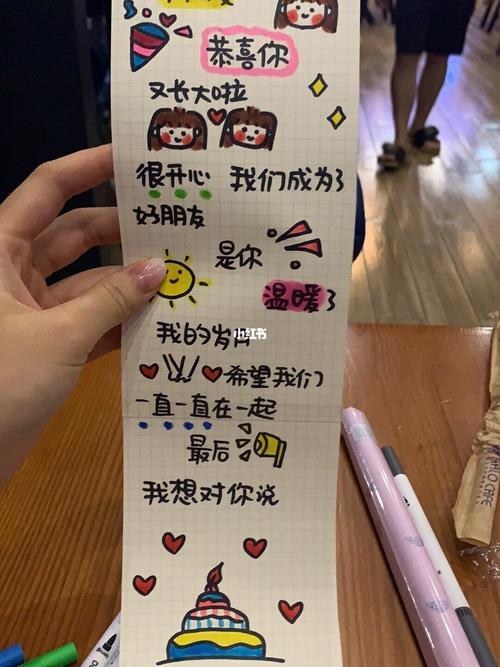 恭喜你
又长大啦
很开心 我们成为了
好朋友
是你
温暖了
我的岁月
小红书
希望我们
一直一直在一起
最后
我想对你说